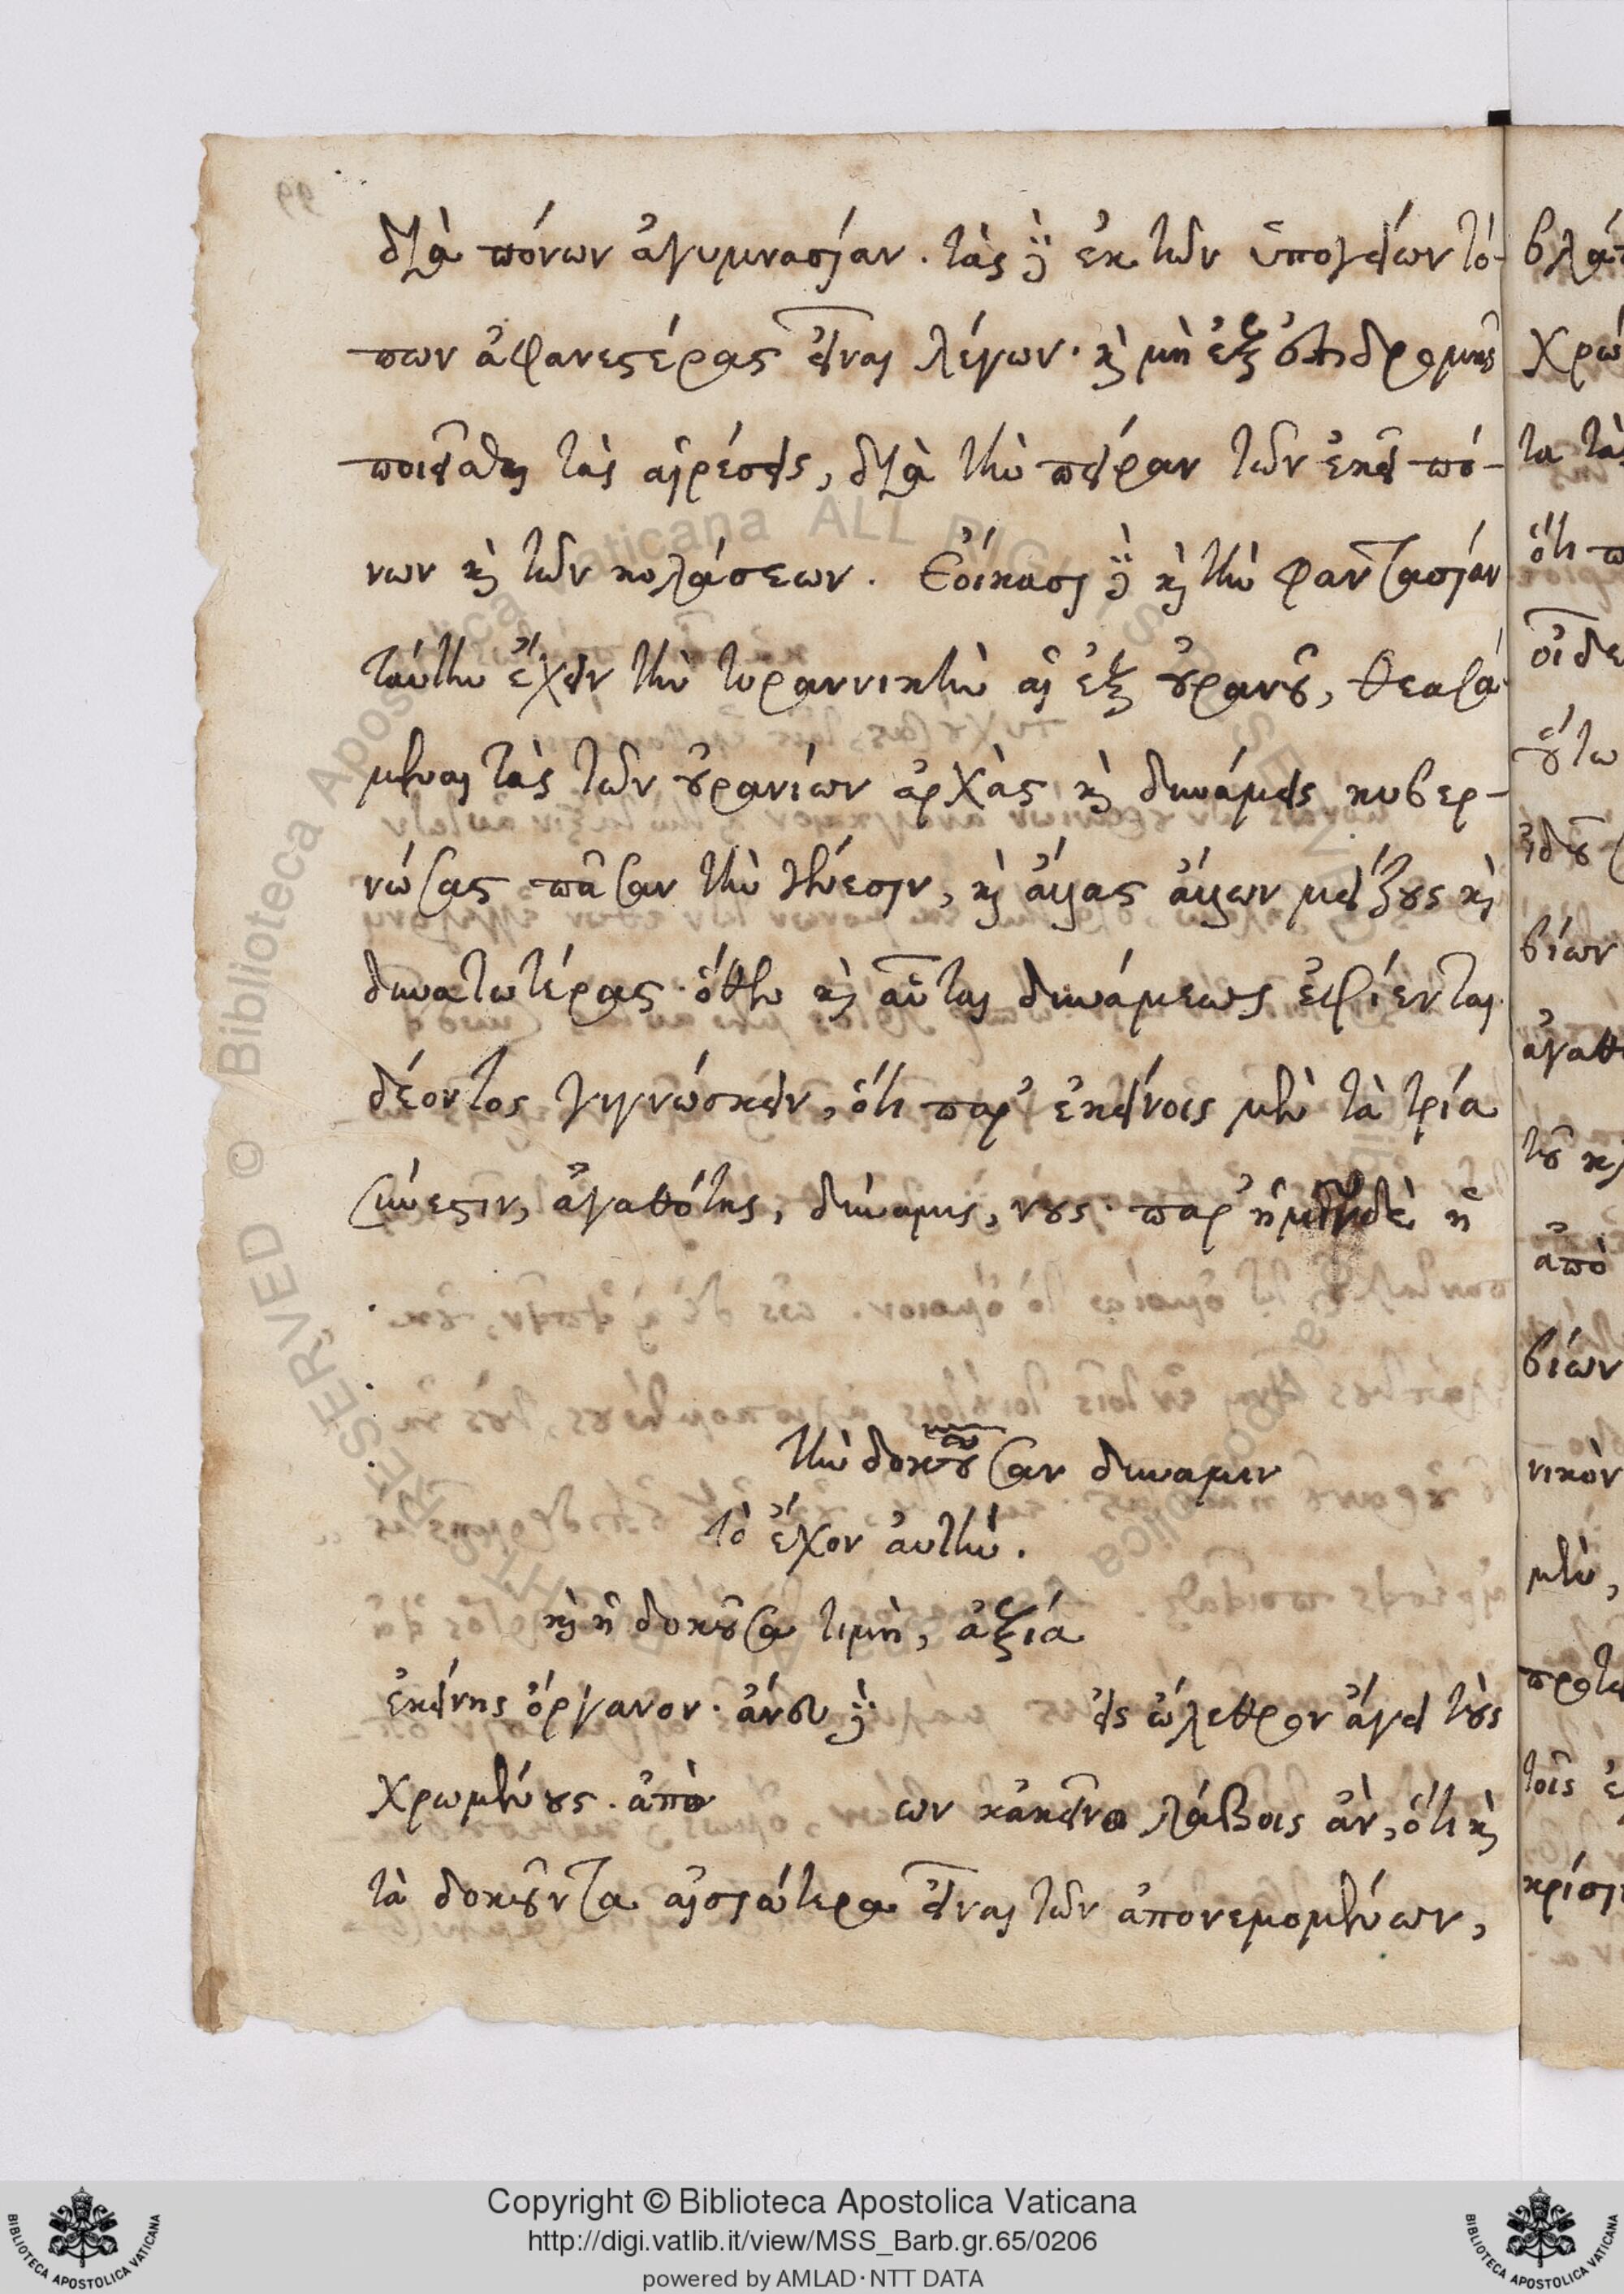 διὰ πόνων ἀγυμνασίαν. τὰς δὲ ἐκ τῶν ὑπογείων τό-
πων ἀφανεστέρας εἶναι λέγων· καὶ μὴ ἐξ ἐπιδρομῆς
ποιεῖσθαι τὰς αἱρέσεις, διὰ τὴν πεῖραν τῶν ἐκεῖ πό-
νων καὶ τῶν κολάσεων. Ἐοίκασι δὲ καὶ τὴν φαντασίαν
ταύτην ἔχειν τὴν τυραννικὴν αἱ ἐξ οὐρανοῦ, θεασά-
μεναι τὰς τῶν οὐρανίων ἀρχὰς καὶ δυνάμεις κυβερ-
νώσας πᾶσαν τὴν γένεσιν, καὶ ἄλλας ἄλλων μείζους καὶ
δυνατωτέρας· ὅθεν καὶ αὗται δυνάμεως ἐφίενται
δέοντος γιγνώσκειν, ὅτι παρ' ἐκείνοις μὲν τὰ τρία
σύνεστιν, ἀγαθότης, δύναμις, νους· παρ' ἡμῖν δὲ ἡ
τὴν δοκοῦσαν δυναμιν
τὸ ἔχον ἀυτὴν.
καὶ ἡ δοκοῦσα τιμὴ, ἀξιά
ἐκείνης ὄργανον· ἄνευ δὲ εἰς ὤλεθρον ἄγει τοὺς
χρωμένους. ἀπὸ ων κἀκεῖνο λάβοις ἂν, ὅτι καὶ
τὰ δοκοῦντα αἰσιώτερα εἶναι τῶν ἀπονεμομένων,
Copyright © Biblioteca Apostolica Vaticana
http://digi.vatlib.it/view/MSS_Barb.gr.65/0206
powered by AMLAD · NTT DATA